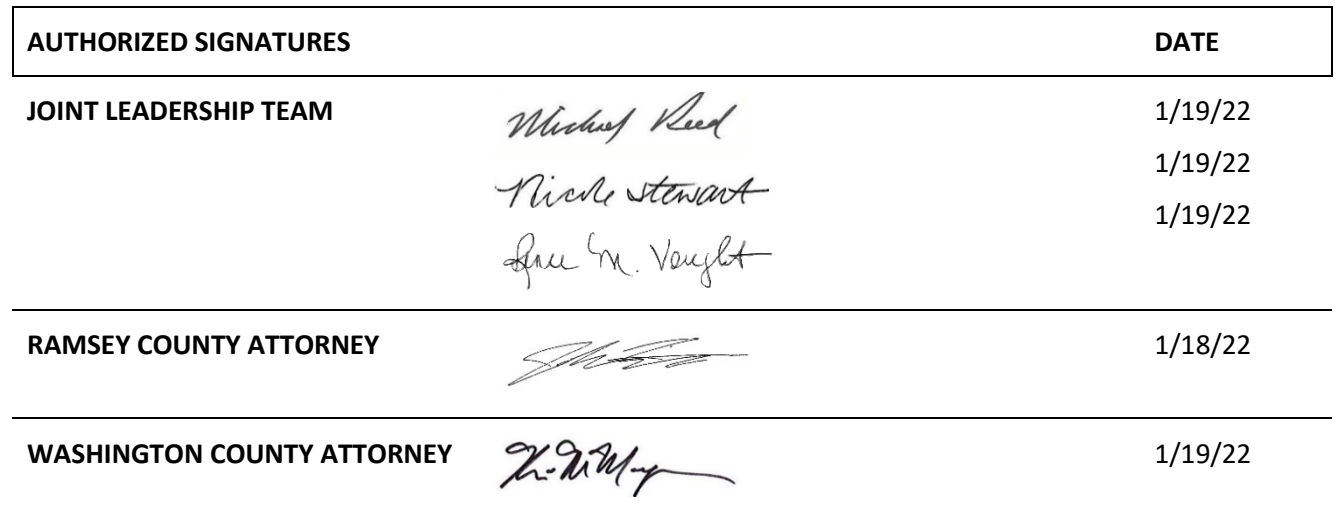 AUTHORIZED SIGNATURES DATE
JOINT LEADERSHIP TEAM Michael Reed 1/19/22
Nicole Stewart 1/19/22
M. Vought 1/19/22
RAMSEY COUNTY ATTORNEY 1/18/22
WASHINGTON COUNTY ATTORNEY 1/19/22